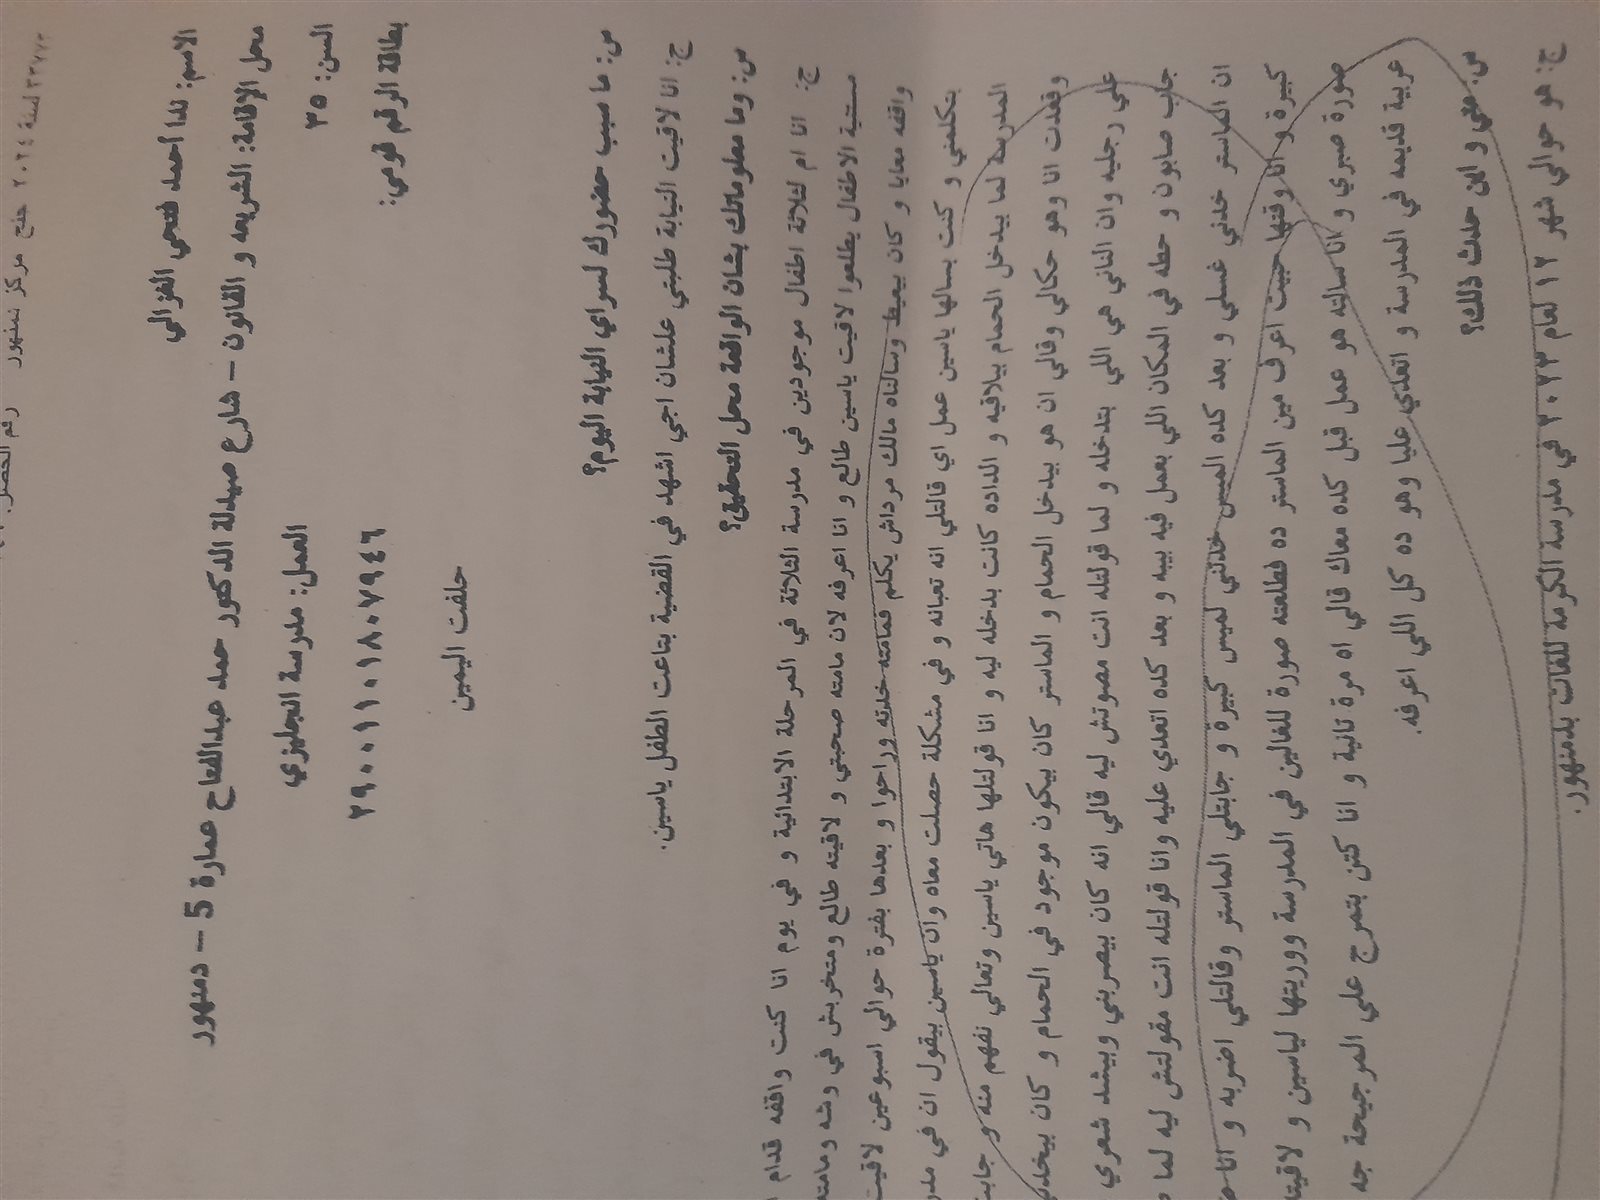 ٣٣٧٧٣ لسنة ٢٠٢٤ جنح مركز دمنهور رقم الحصر
الاسم: ندا احمد فتحي الغزالي
محل الإقامة: الشريعه و القانون – شارع صيدلة الدكتور حمد عبدالفتاح عمارة 5 – دمنهور
السن: ٣٥ العمل: مدرسة انجليزي
بطاقة الرقم قومي: ٢٩٠٠١١٠١٨٠٧٩٤٦
حلفت اليمين
س: ما سبب حضورك لسراي النيابة اليوم؟
ج: انا لاقيت النيابة طلبتي علشان اجي اشهد في القضية بتاعت الطفل ياسين.
س: وما معلوماتك بشان الواقعة محل التحقيق؟
ج: انا ام لثلاثة اطفال موجودين في مدرسة الثلاثة في المرحلة الابتدائية و في يوم انا كنت واقفه قدام
مستنية الاطفال يطلعوا لاقيت ياسين طالع و انا اعرفه لان مامته صحبتي و لاقيته طالع ومتخربش في وشه ومامته
واقفه معايا و كان بيعيط وسالناه مالك مرداش يكلم فمامته خدته وراحوا و بعدها بفترة حوالي اسبوعين لاقيت
بتكلمني و كنت بسالها ياسين عمل اي قالتلي انه تعبانه و في مشكلة حصلت معاه وان ياسين بيقول ان في مدر
المدرسة لما بيدخل الحمام بيلاقيه و الداده كانت بدخله ليه و انا قولتلها هاتي ياسين وتعالي نفهم منه و جابت
وقعدت انا وهو حكالي وقالي ان هو بيدخل الحمام و الماستر كان بيكون موجود في الحمام و كان بيخلد
علي رجليه وان التاني هي اللي بتدخله و لما قولتله انت مصوتش ليه قالي انه كان بيضربني وبيشد شعري
جاب صابون و حطه في المكان اللي بعمل فيه بيبه و بعد كده اتعدي عليه وانا قولتله انت مقولتش ليه لما
ان الماستر خدني غسلي و بعد كده الميس خدتني لميس كبيرة و جابتلي الماستر وقالتلي اضربه و انا
كبيرة و انا وقتها حبيت اعرف مين الماستر ده فطلعته صورة للغالين في المدرسة ووريتها لياسين و لاقيته
صورة صبري و انا سالته هو عمل قبل كده معاك قالي اه مرة تانية و انا كنت بتمرج علي المرجيحة جه
عربية قديمه في المدرسة و اتعدي عليا وهو ده كل اللي اعرفه.
س: متي و اين حدث ذلك؟
ج: هو حوالي شهر ١٢ لعام ٢٠٢٣ في مدرسة الكرمة للغات بدمنهور.